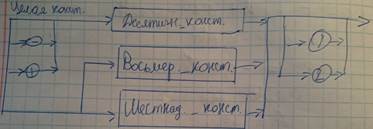 Целая конст.
Десятичн_конст.
-
+
1
2
Восьмер_конст.
Шестнад_конст.